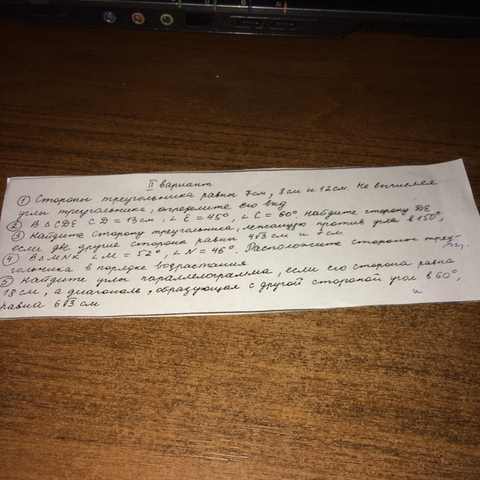 II вариант
① Стороны треугольника равны 7см, 8см и 12см. Не вычисляя
углы треугольника, определите его вид
② В △CDE CD = 13см, ∠E = 45°, ∠C = 60° Найдите сторону DE
③ Найдите сторону треугольника, лежащую против угла в 150°,
если две другие стороны равны 4√3 см и 2 см
④ В △MNK ∠M = 52°, ∠N = 46°. Расположите стороны треу-
гольника в порядке возрастания
⑤ Найдите углы параллелограмма, если его сторона равна
18см, а диагональ, образующая с другой стороной угол в 60°,
равна 6√3 см